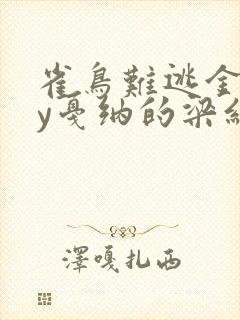 雀鳥難逃金
y戛纳的梁細
澤嘎扎西